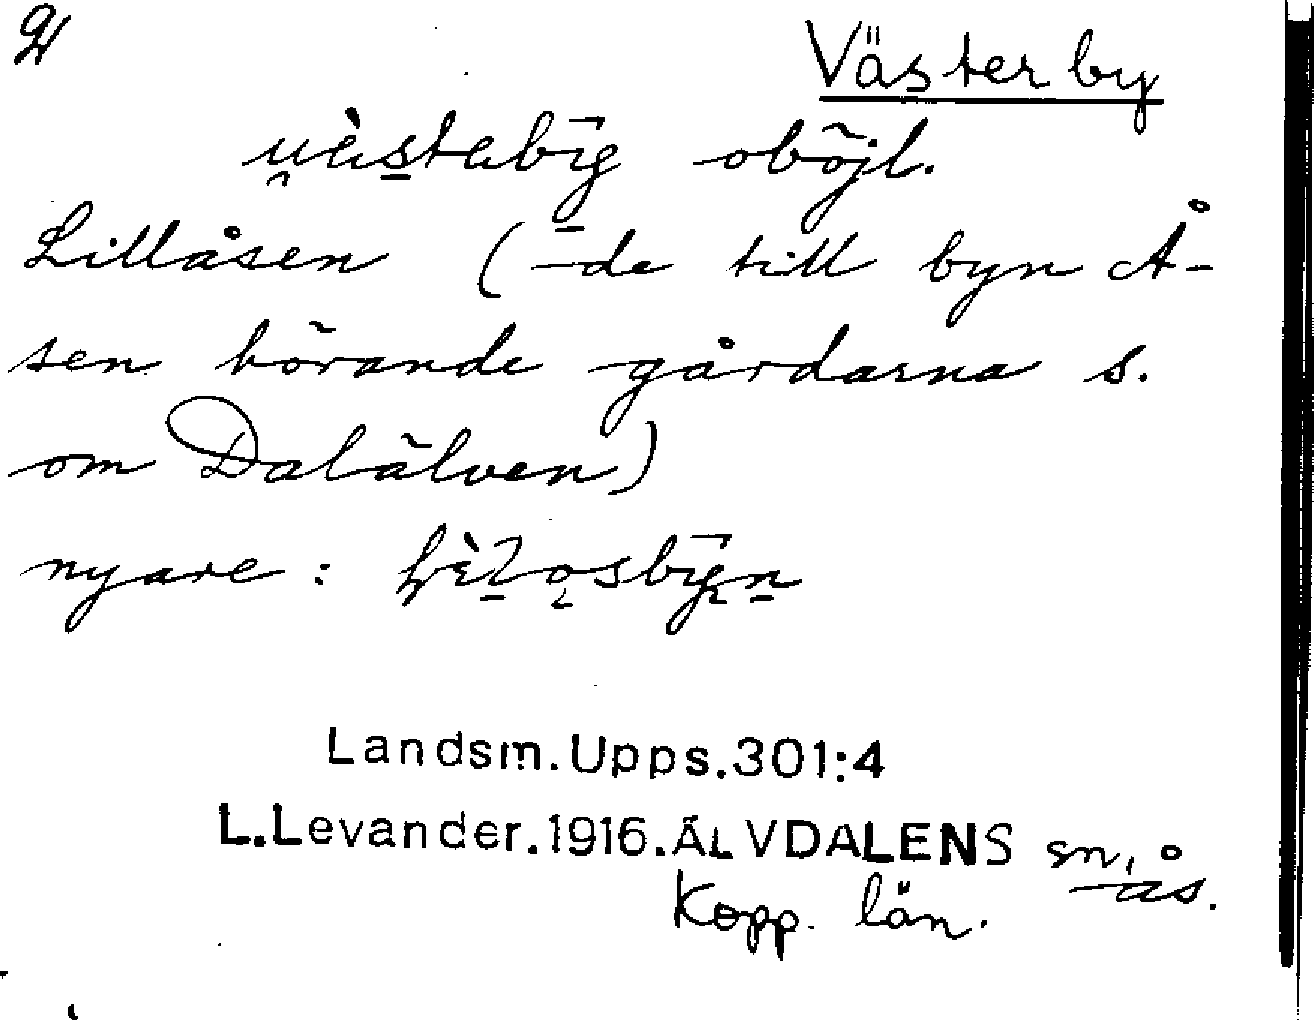 Västerby
oböjl.
Lillåsen (-de till byn Å-
sen hörande gårdarna s.
om Dalälven)
nyare:
Landsm.Upps.301:4
L.Levander.1916.ÄLVDALENS sn, ås.
Kopp. län.